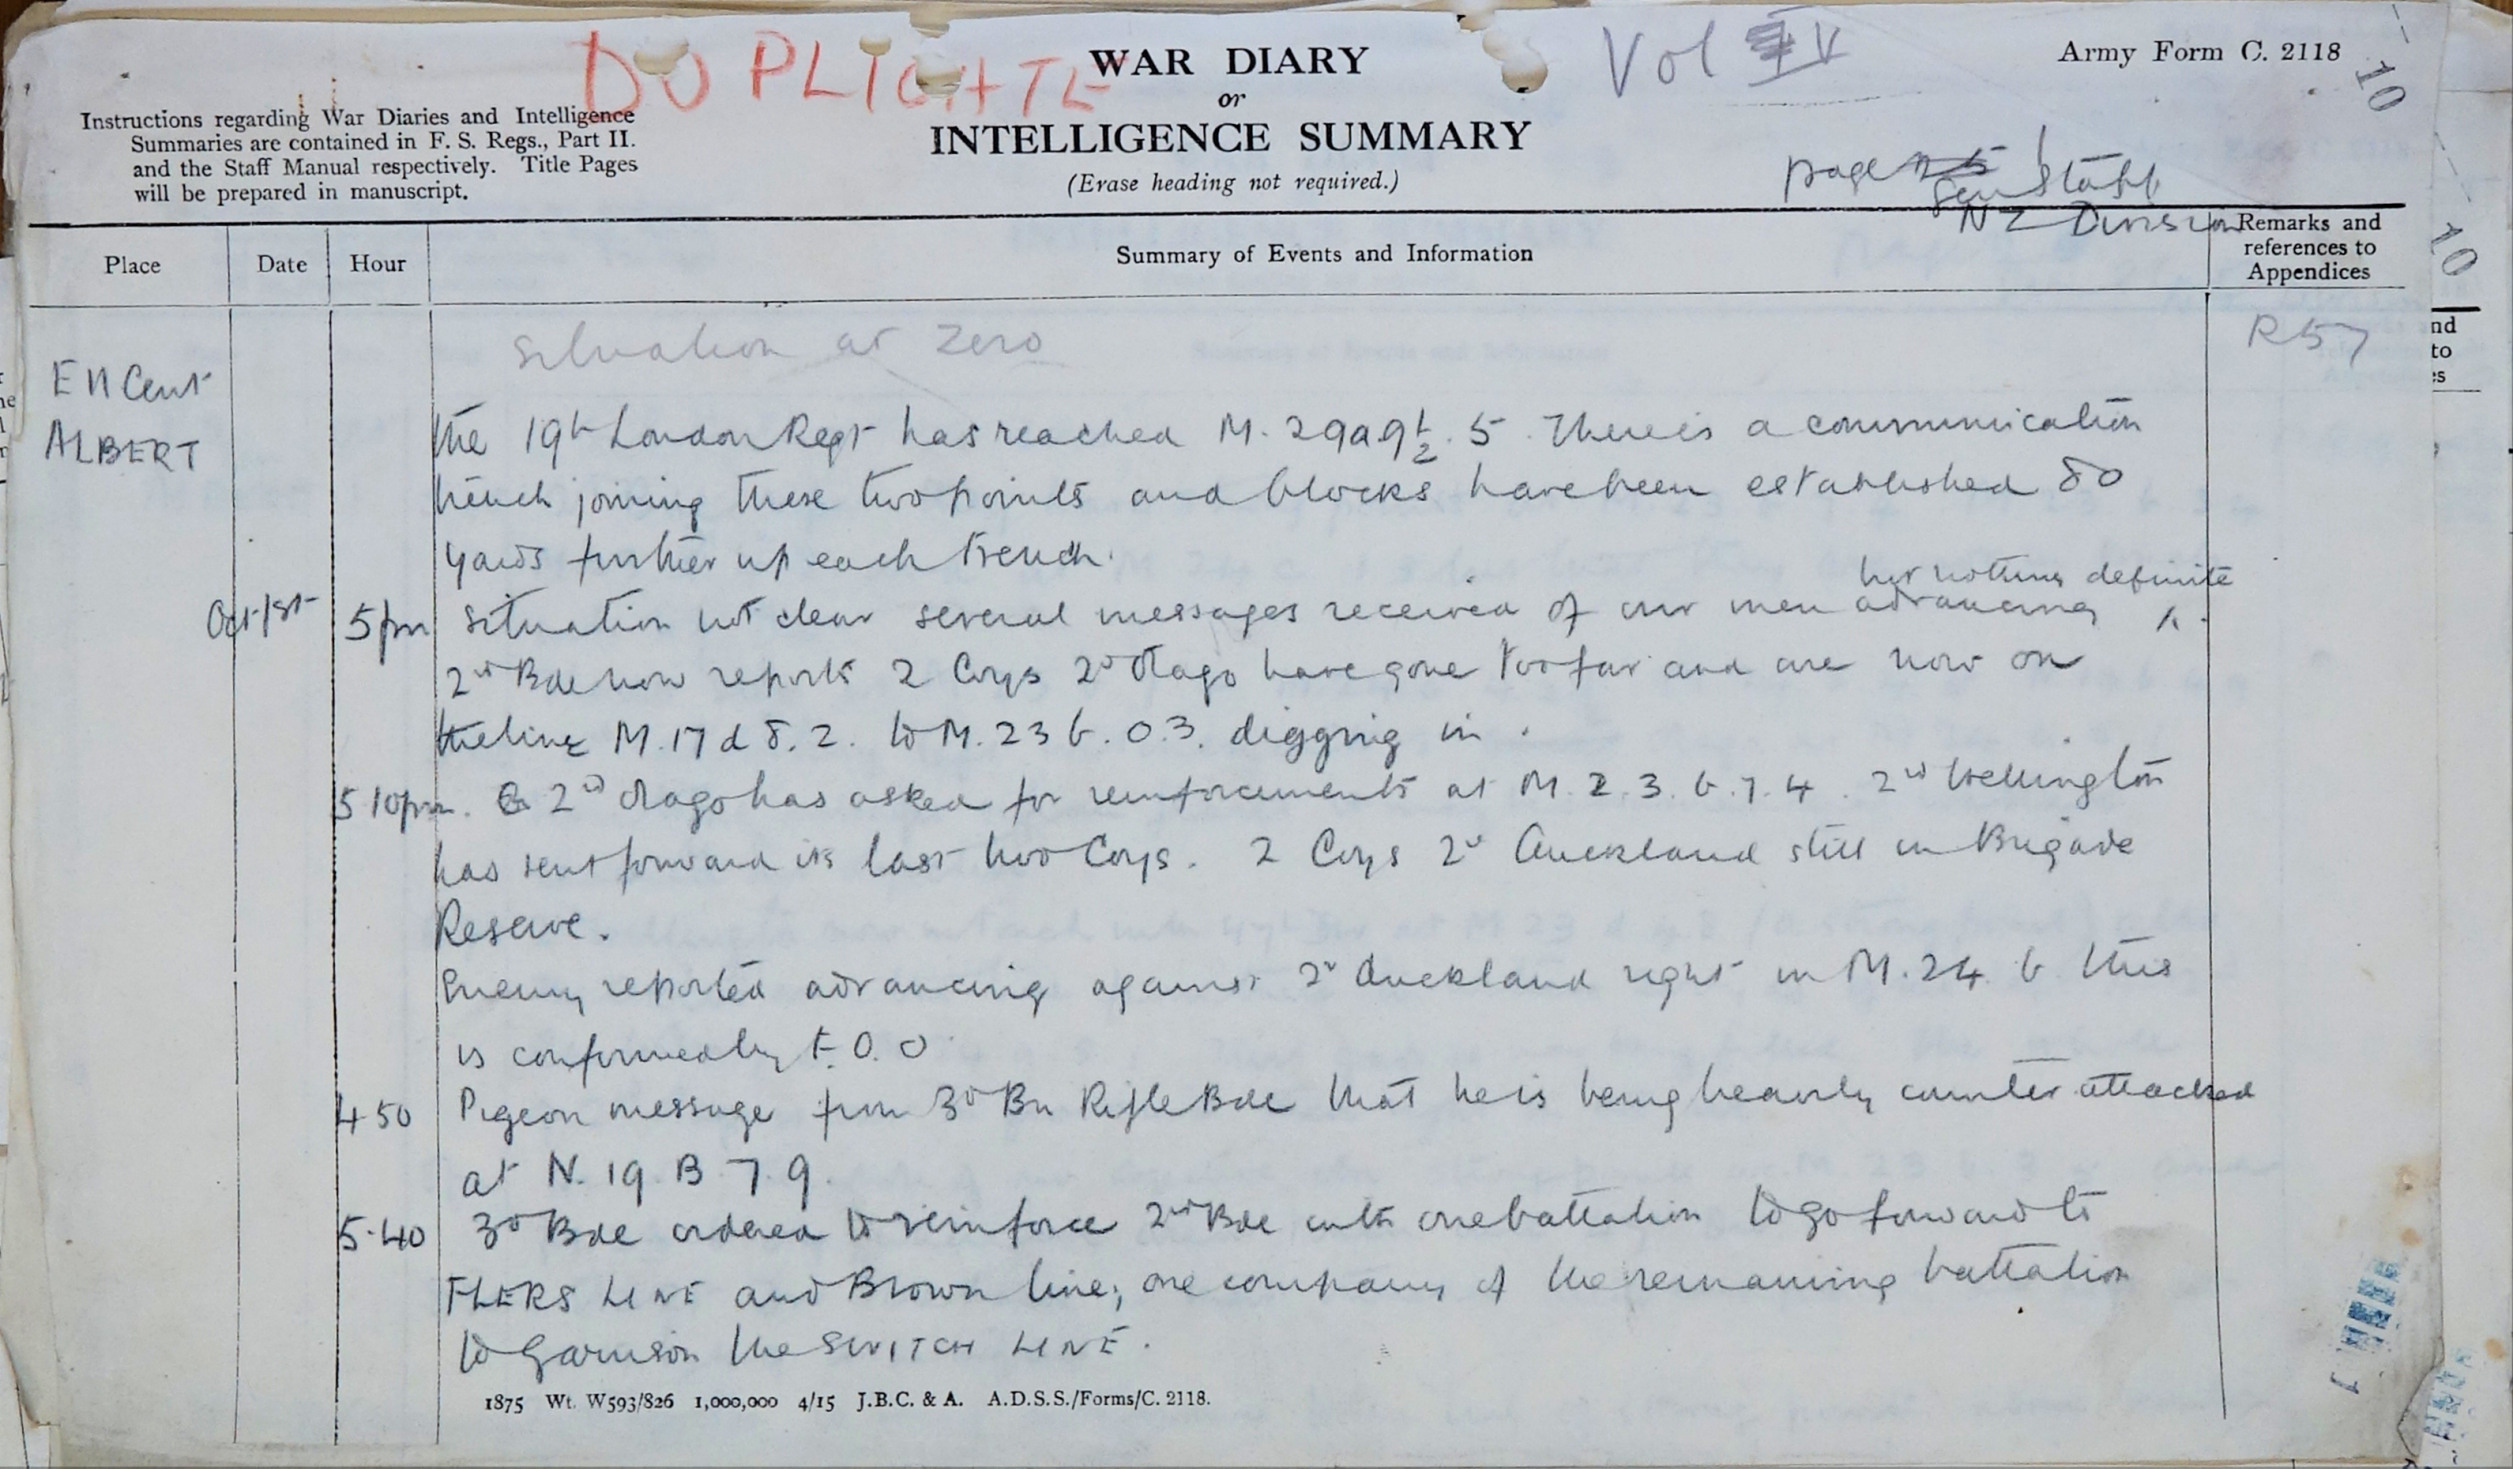 DUPLICATE
WAR DIARY
or
INTELLIGENCE SUMMARY
(Erase heading not required.)
Vol IV
Army Form C. 2118
Instructions regarding War Diaries and Intelligence
Summaries are contained in F. S. Regs., Part II.
and the Staff Manual respectively. Title Pages
will be prepared in manuscript.
page 1
Gen Staff
N Z Division
10
10
Place
Date
Hour
Summary of Events and Information
Remarks and
references to
Appendices
nd
to
es
Situation at Zero
R57
E 11 Cent
ALBERT
the 19th London Regt has reached M. 29a 9½. 5. There is a communication
trench joining these two points and blocks have been established 80
yards further up each trench.
Oct 1st 5 pm Situation not clear several messages received of our men advancing but nothing definite
2nd Bde now reports 2 Coys 2d Otago have gone too far and are now on
the line M.17 d 8.2. to M. 23 b. 0.3. digging in.
5 10 pm. 2nd Otago has asked for reinforcements at M. 2.3. b. 7. 4. 2nd Wellington
has sent forward its last two Coys. 2 Coys 2d Auckland still in Brigade
Reserve.
Enemy reported advancing against 2d Auckland right in M. 24 b this
is confirmed by F.O.O
4 50 Pigeon message from 3d Bn Rifle Bde that he is being heavily counter attacked
at N. 19. B 7. 9.
5.40 3d Bde ordered to reinforce 2nd Bde with one battalion to go forward to
FLERS LINE and Brown line; one company of the remaining battalion
to garrison the SWITCH LINE.
1875 Wt. W593/826 1,000,000 4/15 J.B.C. & A. A.D.S.S./Forms/C. 2118.